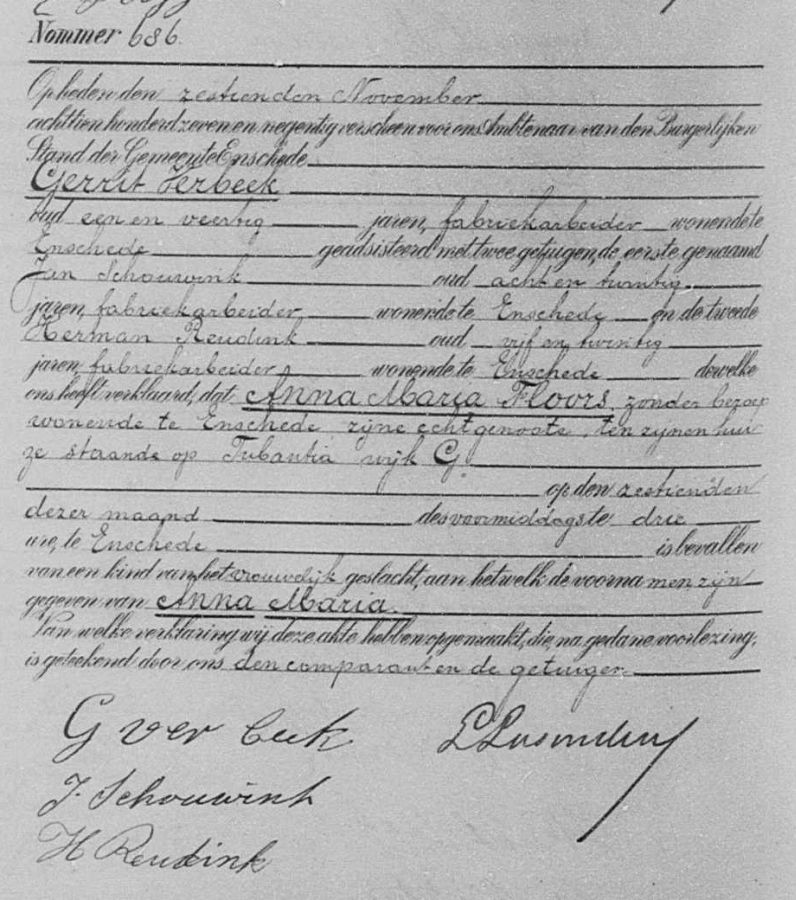 Nommer 686.
Op heden den zestienden November
achttien honderd zeven en negentig verscheen voor ons Ambtenaar van den Burgerlijken
Stand der Gemeente Enschede
Gerrit Verbeek
oud een en veertig jaren, fabriekarbeider wonende te
Enschede geadsisteerd met twee getuigen, de eerste genaamd
Jan Schouwink oud acht en twintig
jaren, fabriekarbeider wonende te Enschede en de tweede
Herman Reudink oud vijf en twintig
jaren, fabriekarbeider wonende te Enschede dewelke
ons heeft verklaard, dat Anna Maria Floors, zonder beroep
wonende te Enschede zijne echtgenoote, ten zijnen hui
ze staande op Tubantia wijk G.
op den zestienden
dezer maand des voormiddags te drie
ure, te Enschede is bevallen
van een kind van het vrouwelijk geslacht, aan hetwelk de voorna men zijn
gegeven van Anna Maria.
Van welke verklaring wij deze akte hebben opgemaakt, die, na gedane voorlezing,
is geteekend door ons den comparant en de getuigen.
G ver beek
J. Schouwink
H Reudink